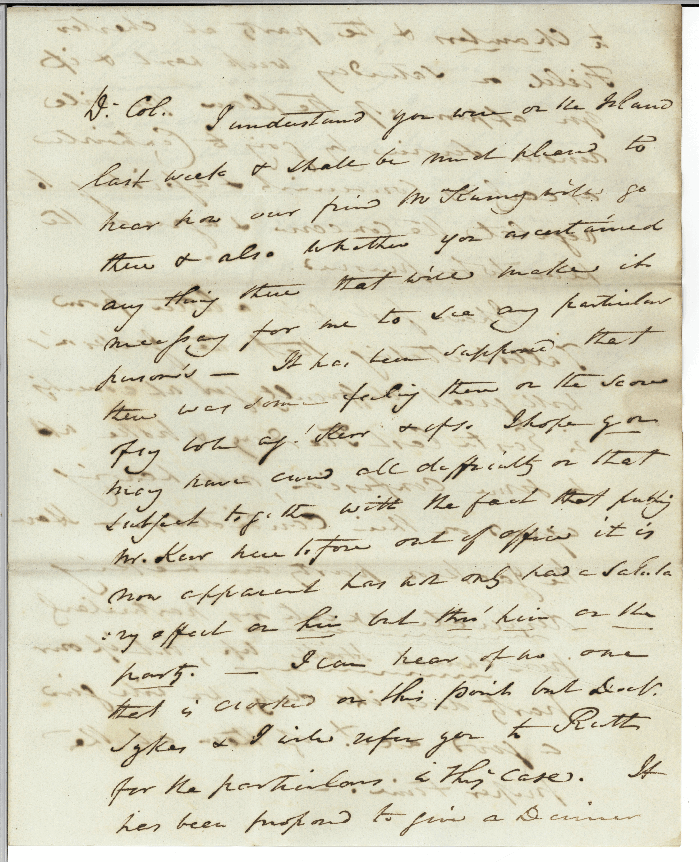 Dr. Col. I understand you were on the Island
last week & shall be much pleased to
hear how our friend Mr Kenny will go
there & also whether you ascertained
any thing there that will make it
necessary for me to see any particular
persons — It has been supposed that
there was some feeling there on the score
of my vote agt Kerr & ifso I hope you
may have cured all difficulty on that
subject together with the fact that putting
Mr. Kerr heretofore out of office it is
now apparent has not only had a Saluta
:ry effect on him but thro' him on the
party. — I can hear of no one
that is crooked on this point but Doctr.
Sykes & I will refer you to Ruth
for the particulars in this case. It
has been proposed to give a Dinner